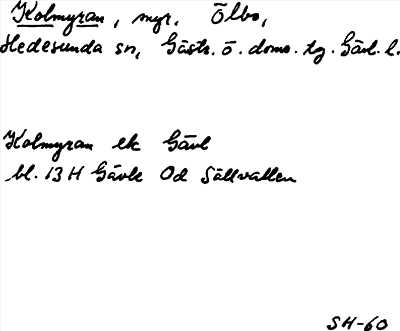 Kolmyran, myr. Ölbo,
Hedesunda sn, Gästr. ö. doms. tg. Gävl. l.
Kolmyran ek Gävl
bl. 13 H Gävle 0d Sällvallen
SH-60